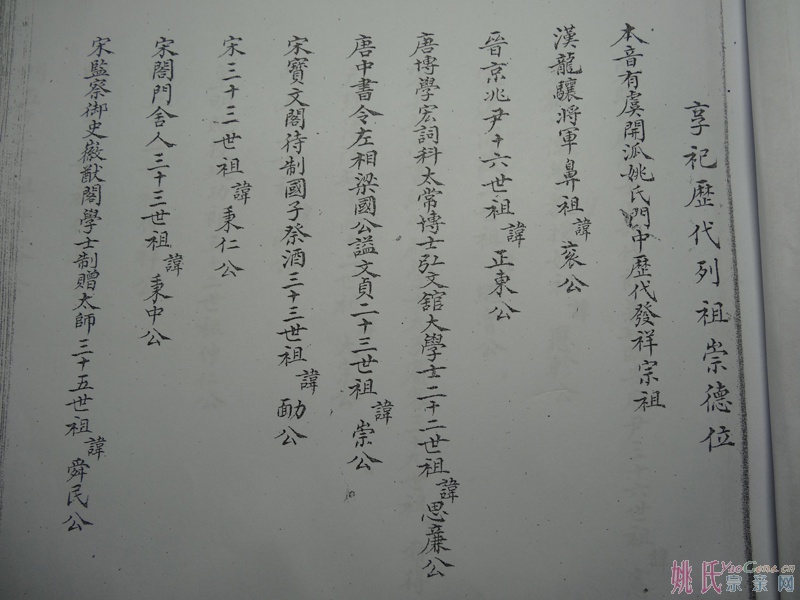 享祀歷代列祖崇德位
本音有虞開派姚氏門中歷代發祥宗祖
漢龍驤將軍鼻祖諱衮公
晉京兆尹十六世祖諱正東公
唐博學宏詞科太常博士弘文館大學士二十二世祖諱思廉公
唐中書令左相梁國公謚文貞二十三世祖諱崇公
宋寶文閣待制國子祭酒三十三世祖諱勔公
宋三十三世祖諱秉仁公
宋閤門舍人三十三世祖諱秉中公
宋監察御史徽猷閣學士制贈太師三十五世祖諱舜民公
姚氏宗亲网
YaoCona.cn